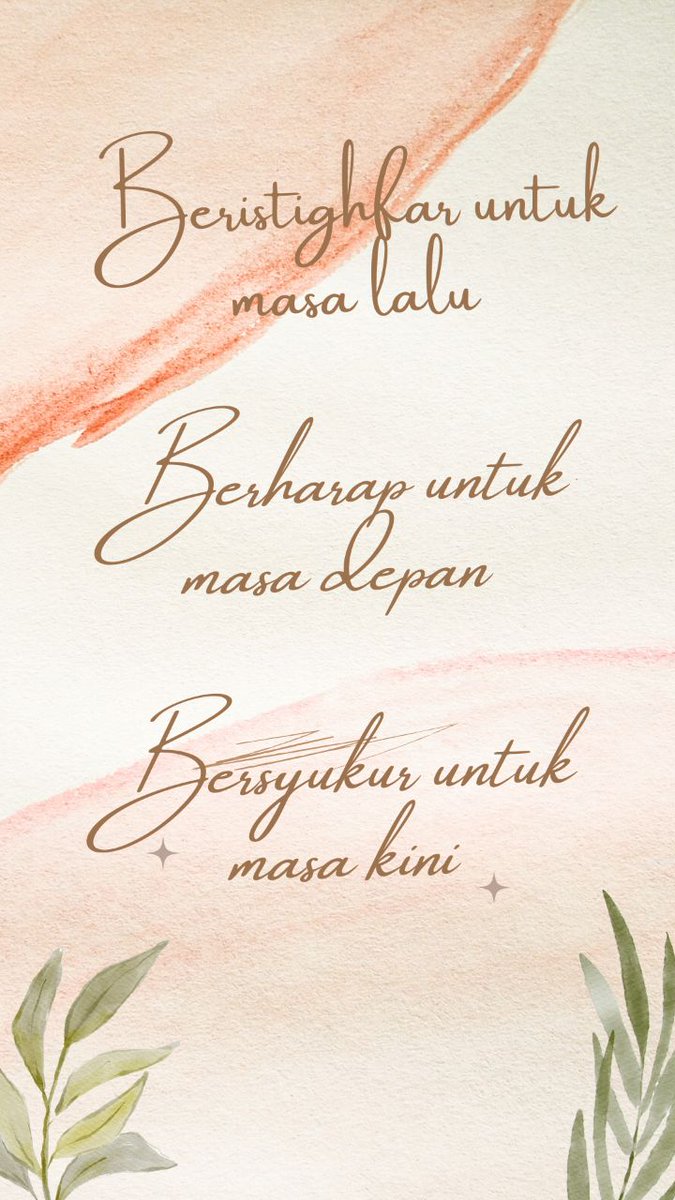 Beristighfar untuk
masa lalu
Berharap untuk
masa depan
Bersyukur untuk
masa kini